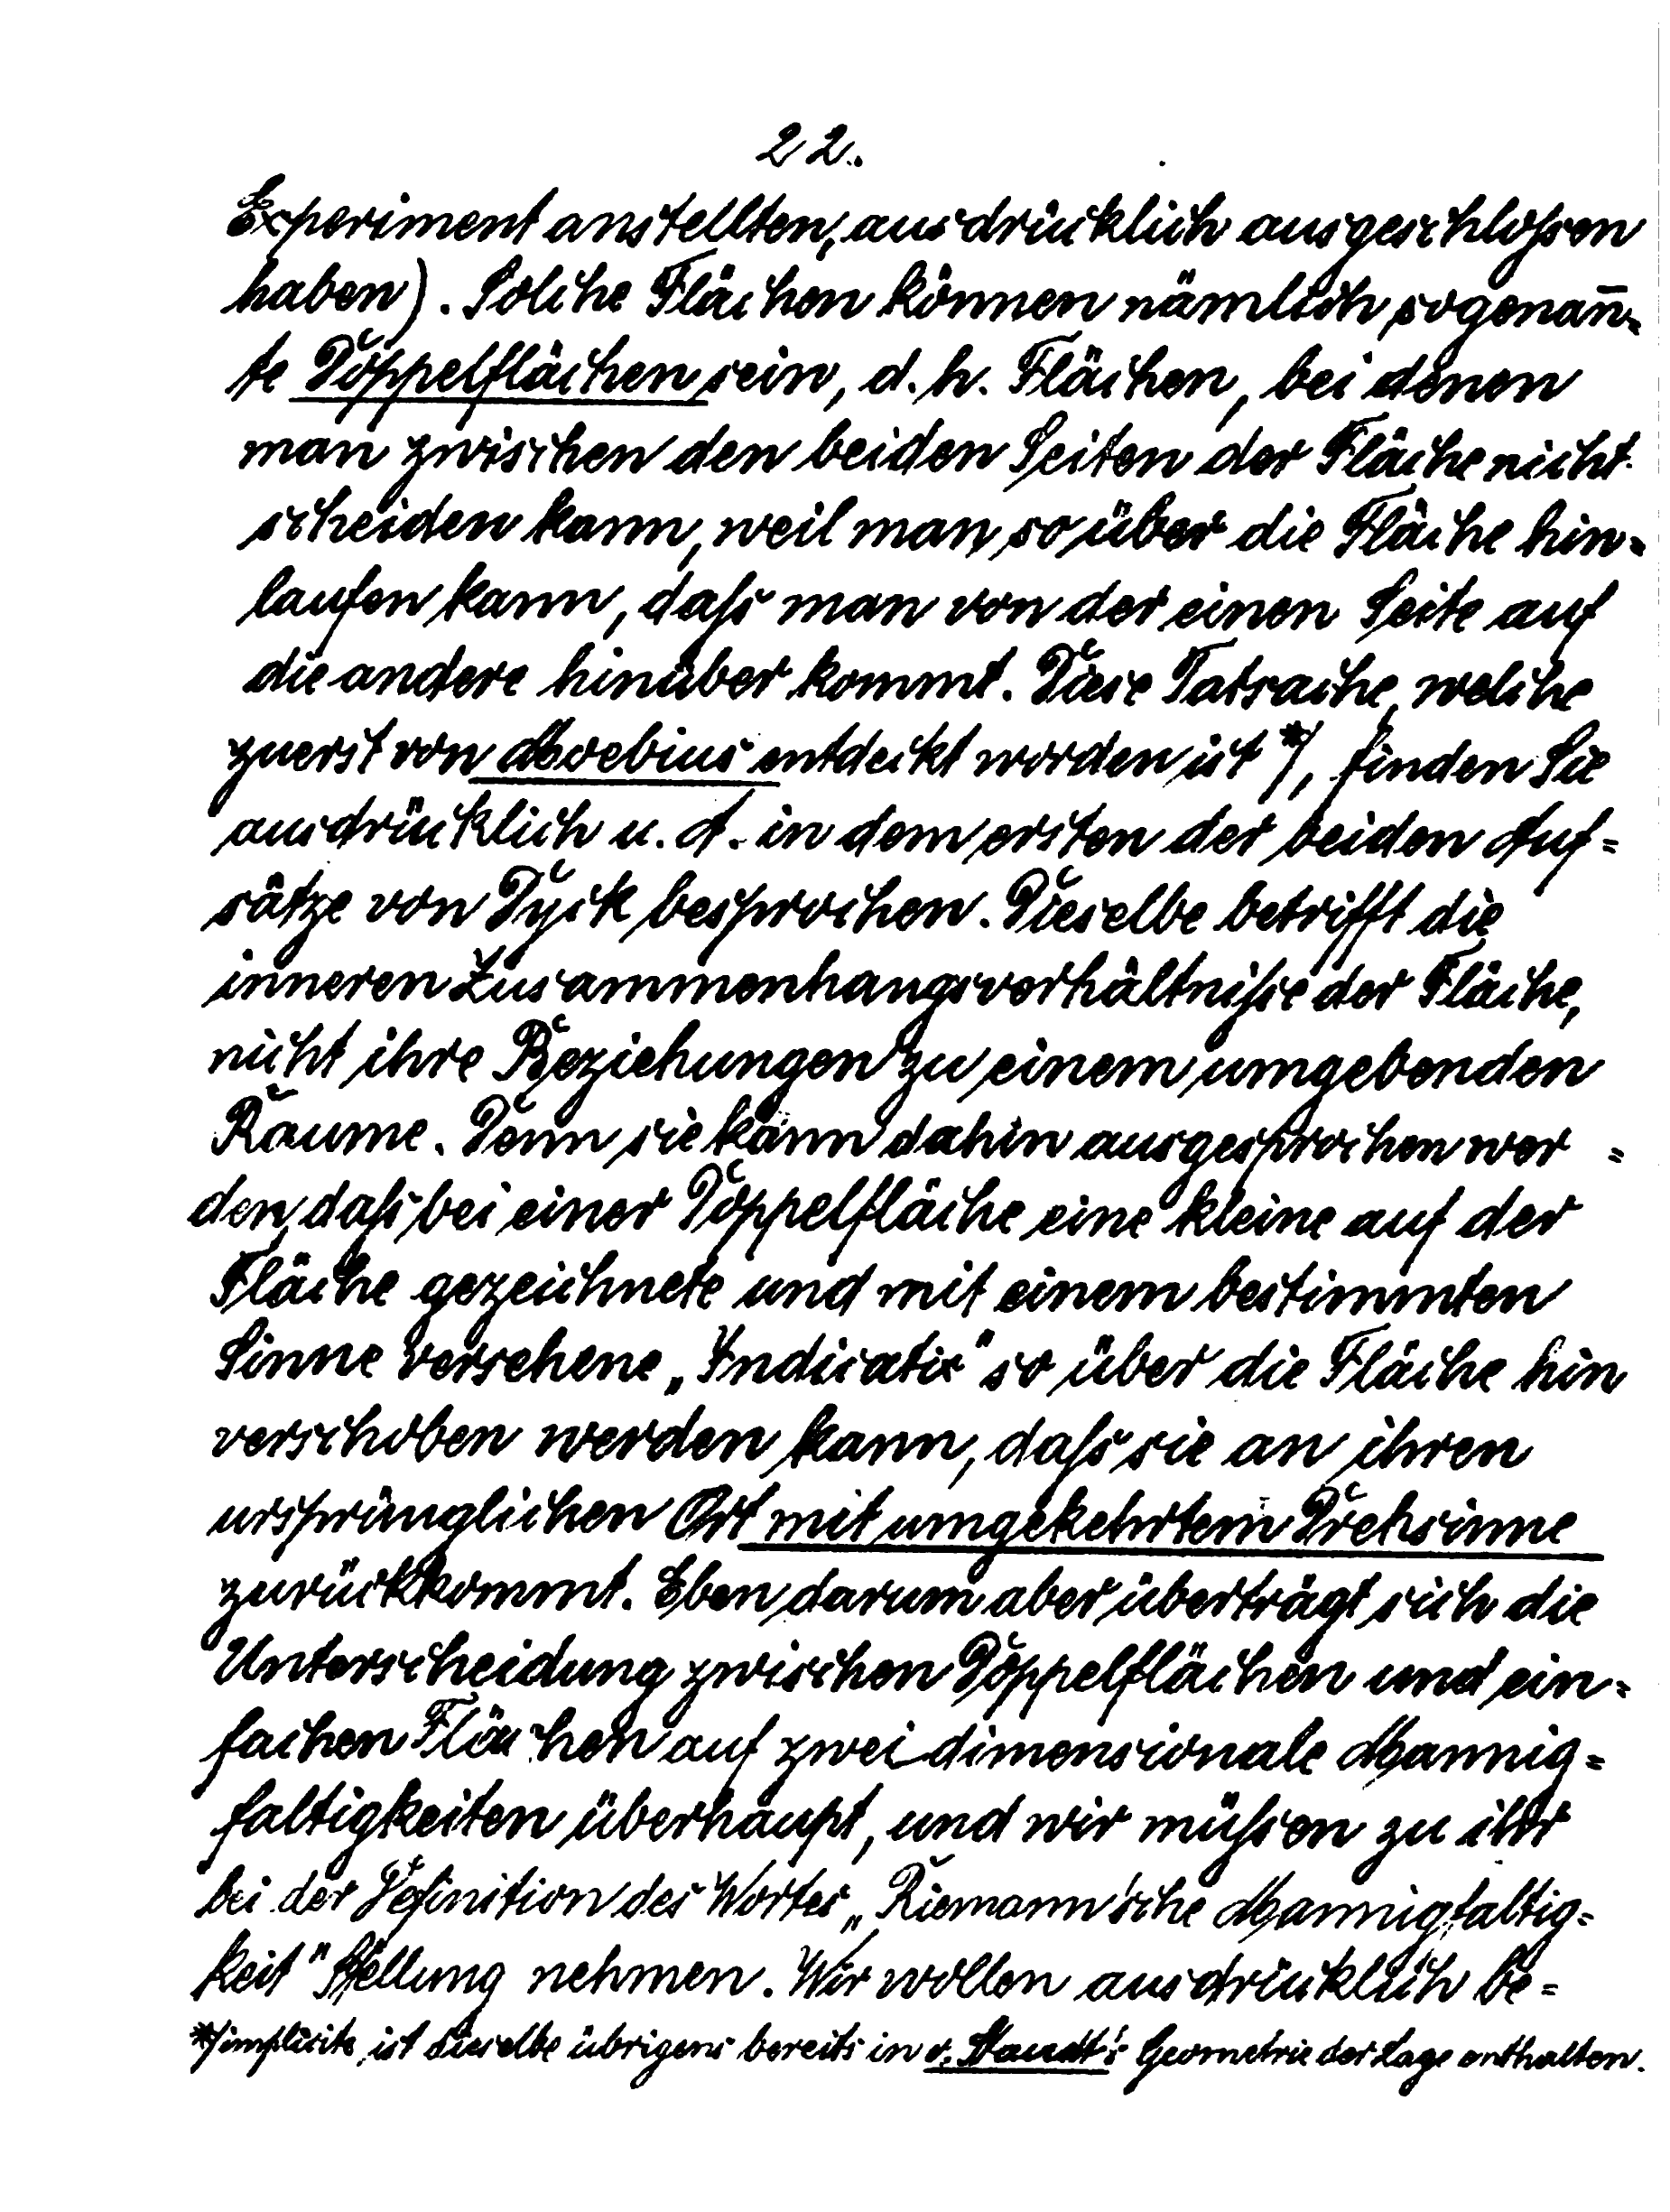 22.
Experiment anstellten, ausdrücklich ausgeschloßen
haben). Solche Flächen können nämlich sogenan̄-
te Doppelflächen sein, d. h. Flächen, bei denen
man zwischen den beiden Seiten der Fläche nicht
scheiden kann, weil man so über die Fläche hin-
laufen kann, daß man von der einen Seite auf
die andere hinüber kommt. Diese Tatsache, welche
zuerst von Moebius entdeckt worden ist *), finden Sie
ausdrücklich u. A. in dem ersten der beiden Auf-
sätze von Dyck besprochen. Dieselbe betrifft die
inneren Zusammenhangsverhältniße der Fläche,
nicht ihre Beziehungen zu einem umgebenden
Raume. Denn sie kann dahin ausgesprochen wer-
den, daß bei einer Doppelfläche eine kleine auf der
Fläche gezeichnete und mit einem bestimmten
Sinne versehene „Indicatix" so über die Fläche hin
verschoben werden kann, daß sie an ihren
ursprünglichen Ort mit umgekehrtem Drehsinne
zurückkommt. Eben darum aber überträgt sich die
Unterscheidung zwischen Doppelflächen und ein-
fachen Flächen auf zweidimensionale Mannig-
faltigkeiten überhaupt, und wir müßen zu ihr
bei der Definition des Wortes „Riemann'sche Mannigfaltig-
keit" Stellung nehmen. Wir wollen ausdrücklich be-
*) implicite ist dieselbe übrigens bereits in v. Staudt's Geometrie der Lage enthalten.